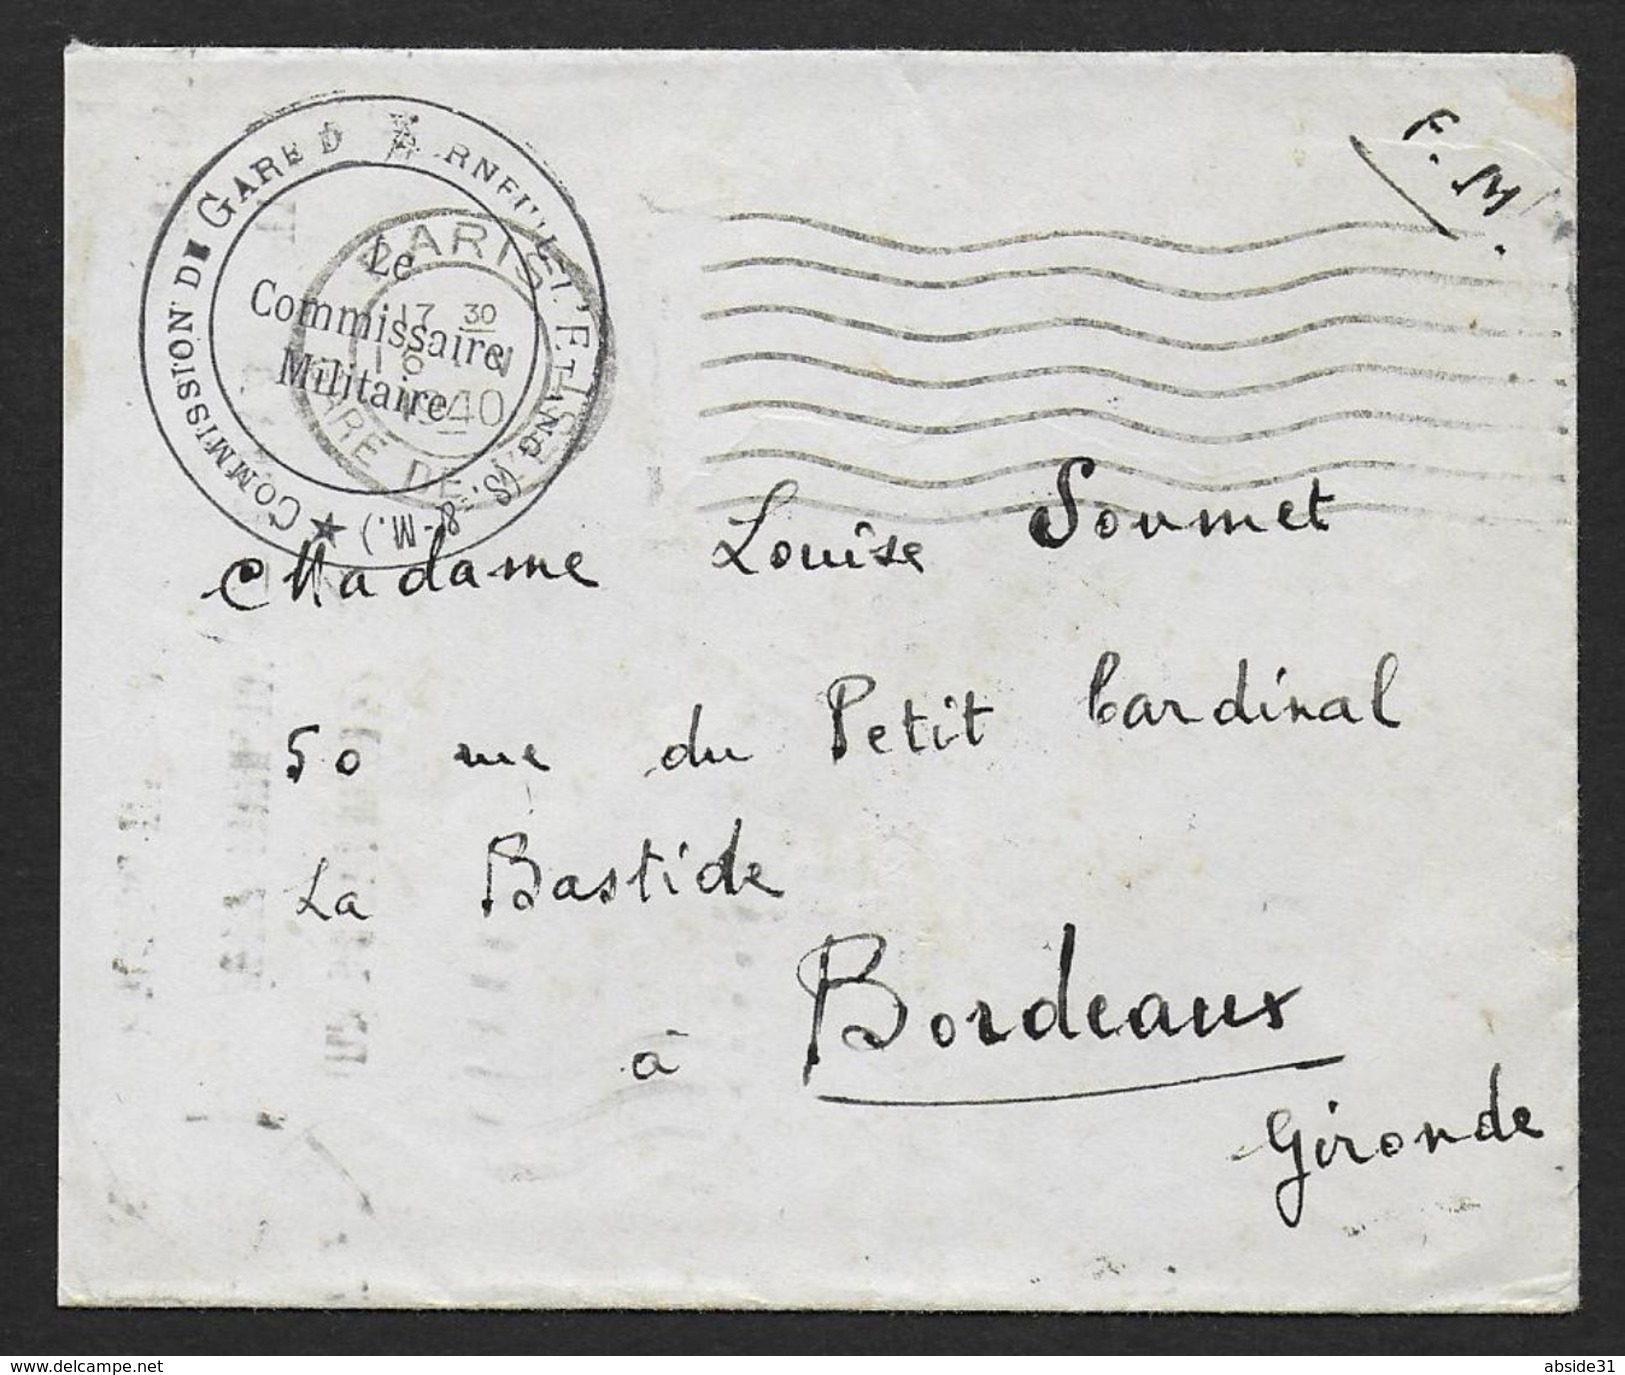 COMMISSION DE GARE D'ARNEUIL L'ETANG (S.-&-M.)
Le
Commissaire
Militaire
PARIS
17 30
1940
GARE DE
F.M.
Madame Louise Soumet
50 rue du Petit Cardinal
La Bastide
à Bordeaux
Gironde
www.delcampe.net
abside31